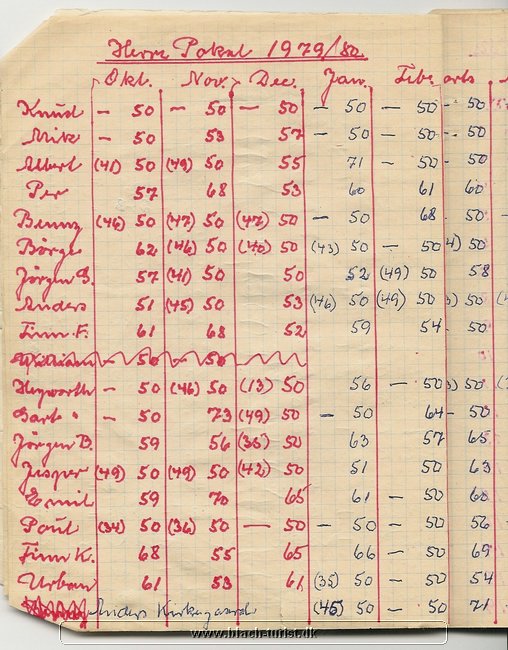 Herre Pokal 1979/80.
Okt. Nov. Dec. Jan. Febr. arts
Knud - 50 - 50 - 50 - 50 - 50 - 50
Mik - 50 53 57 - 50 - 50 - 50
Albert (41) 50 (49) 50 55 71 - 50 - 50
Per 57 68 53 60 61 60
Benny (46) 50 (47) 50 (47) 50 - 50 68 - 50
Börge 62 (46) 50 (40) 50 (43) 50 - 50 4) 50
Jörgen S. 57 (41) 50 50 52 (49) 50 58
Anders 51 (45) 50 53 (46) 50 (49) 50 3) 50
Finn F. 61 68 52 59 54 - 50
William 50 50
Heyworth - 50 (46) 50 (13) 50 56 - 50 3) 50
Bart - 50 73 (49) 50 - 50 64 - 50
Jörgen B. 59 56 (35) 50 63 57 65
Jesper (49) 50 (49) 50 (42) 50 51 50 63
Emil 59 70 65 61 - 50 60
Poul (34) 50 (36) 50 - 50 - 50 - 50 56
Finn K. 68 55 65 66 - 50 69
Urban 61 53 61 (35) 50 - 50 54
Anders Kirkegaard (45) 50 - 50 71
www.blachturist.dk